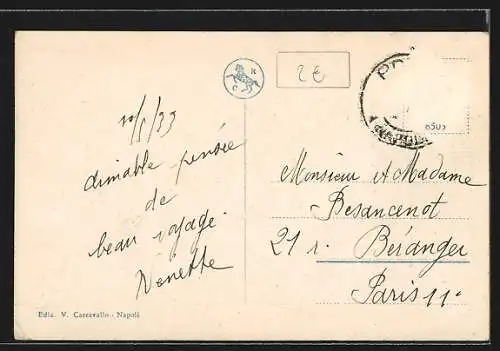 C R
2 €
6505
10/5/33
Aimable pensée
de
beau voyage.
Nénette
Monsieur & Madame
Besancenot
21 r. Béranger
Paris 11e
Ediz. V. Carcavallo - Napoli